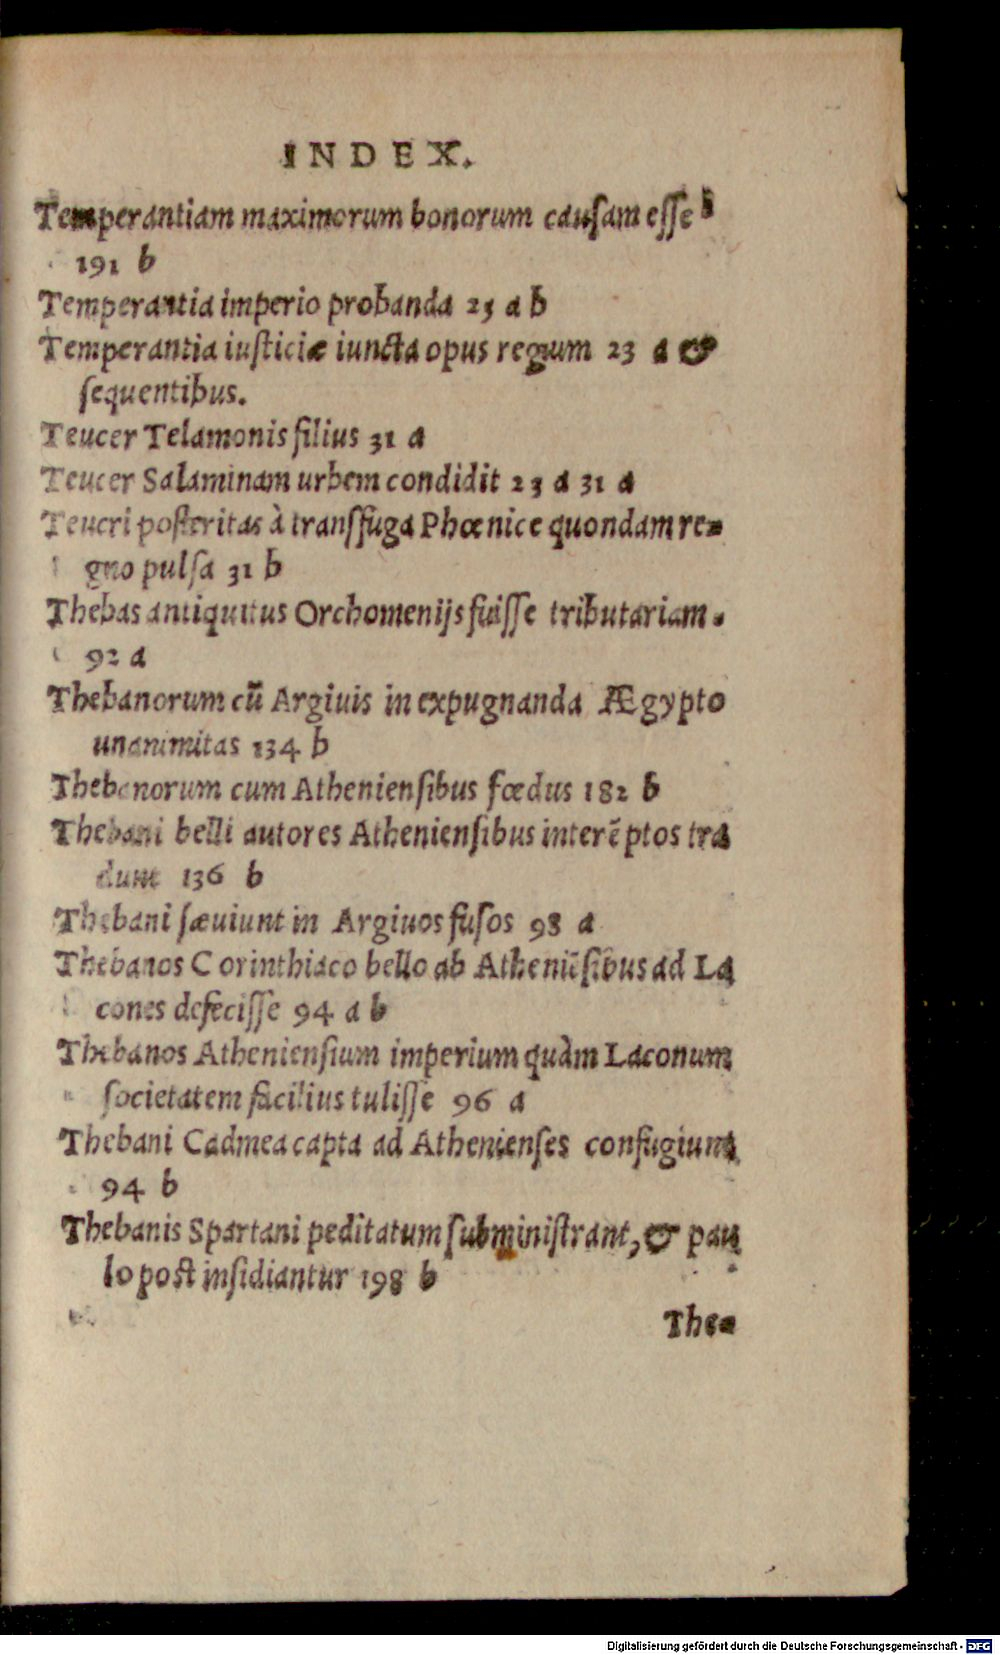 INDEX.
Temperantiam maximorum bonorum causam esse
191 b
Temperantia imperio probanda 25 a b
Temperantia iusticiæ iuncta opus regium 23 a &
sequentibus.
Teucer Telamonis filius 31 a
Teucer Salaminam urbem condidit 23 a 31 a
Teucri posteritas à transfuga Phœnice quondam re-
gno pulsa 31 b
Thebas antiquitus Orchomenijs fuisse tributariam.
92 a
Thebanorum cū Argiuis in expugnanda Ægypto
unanimitas 134 b
Thebanorum cum Atheniensibus fœdus 182 b
Thebani belli autores Atheniensibus interēptos tra
dunt 136 b
Thebani sæuiunt in Argiuos fusos 98 a
Thebanos Corinthiaco bello ab Atheniēsibus ad La
cones defecisse 94 a b
Thebanos Atheniensium imperium quàm Laconum
societatem facilius tulisse 96 a
Thebani Cadmea capta ad Athenienses confugiunt
94 b
Thebanis Spartani peditatum subministrant, & pau
lo post insidiantur 198 b
The-
Digitalisierung gefördert durch die Deutsche Forschungsgemeinschaft - DFG